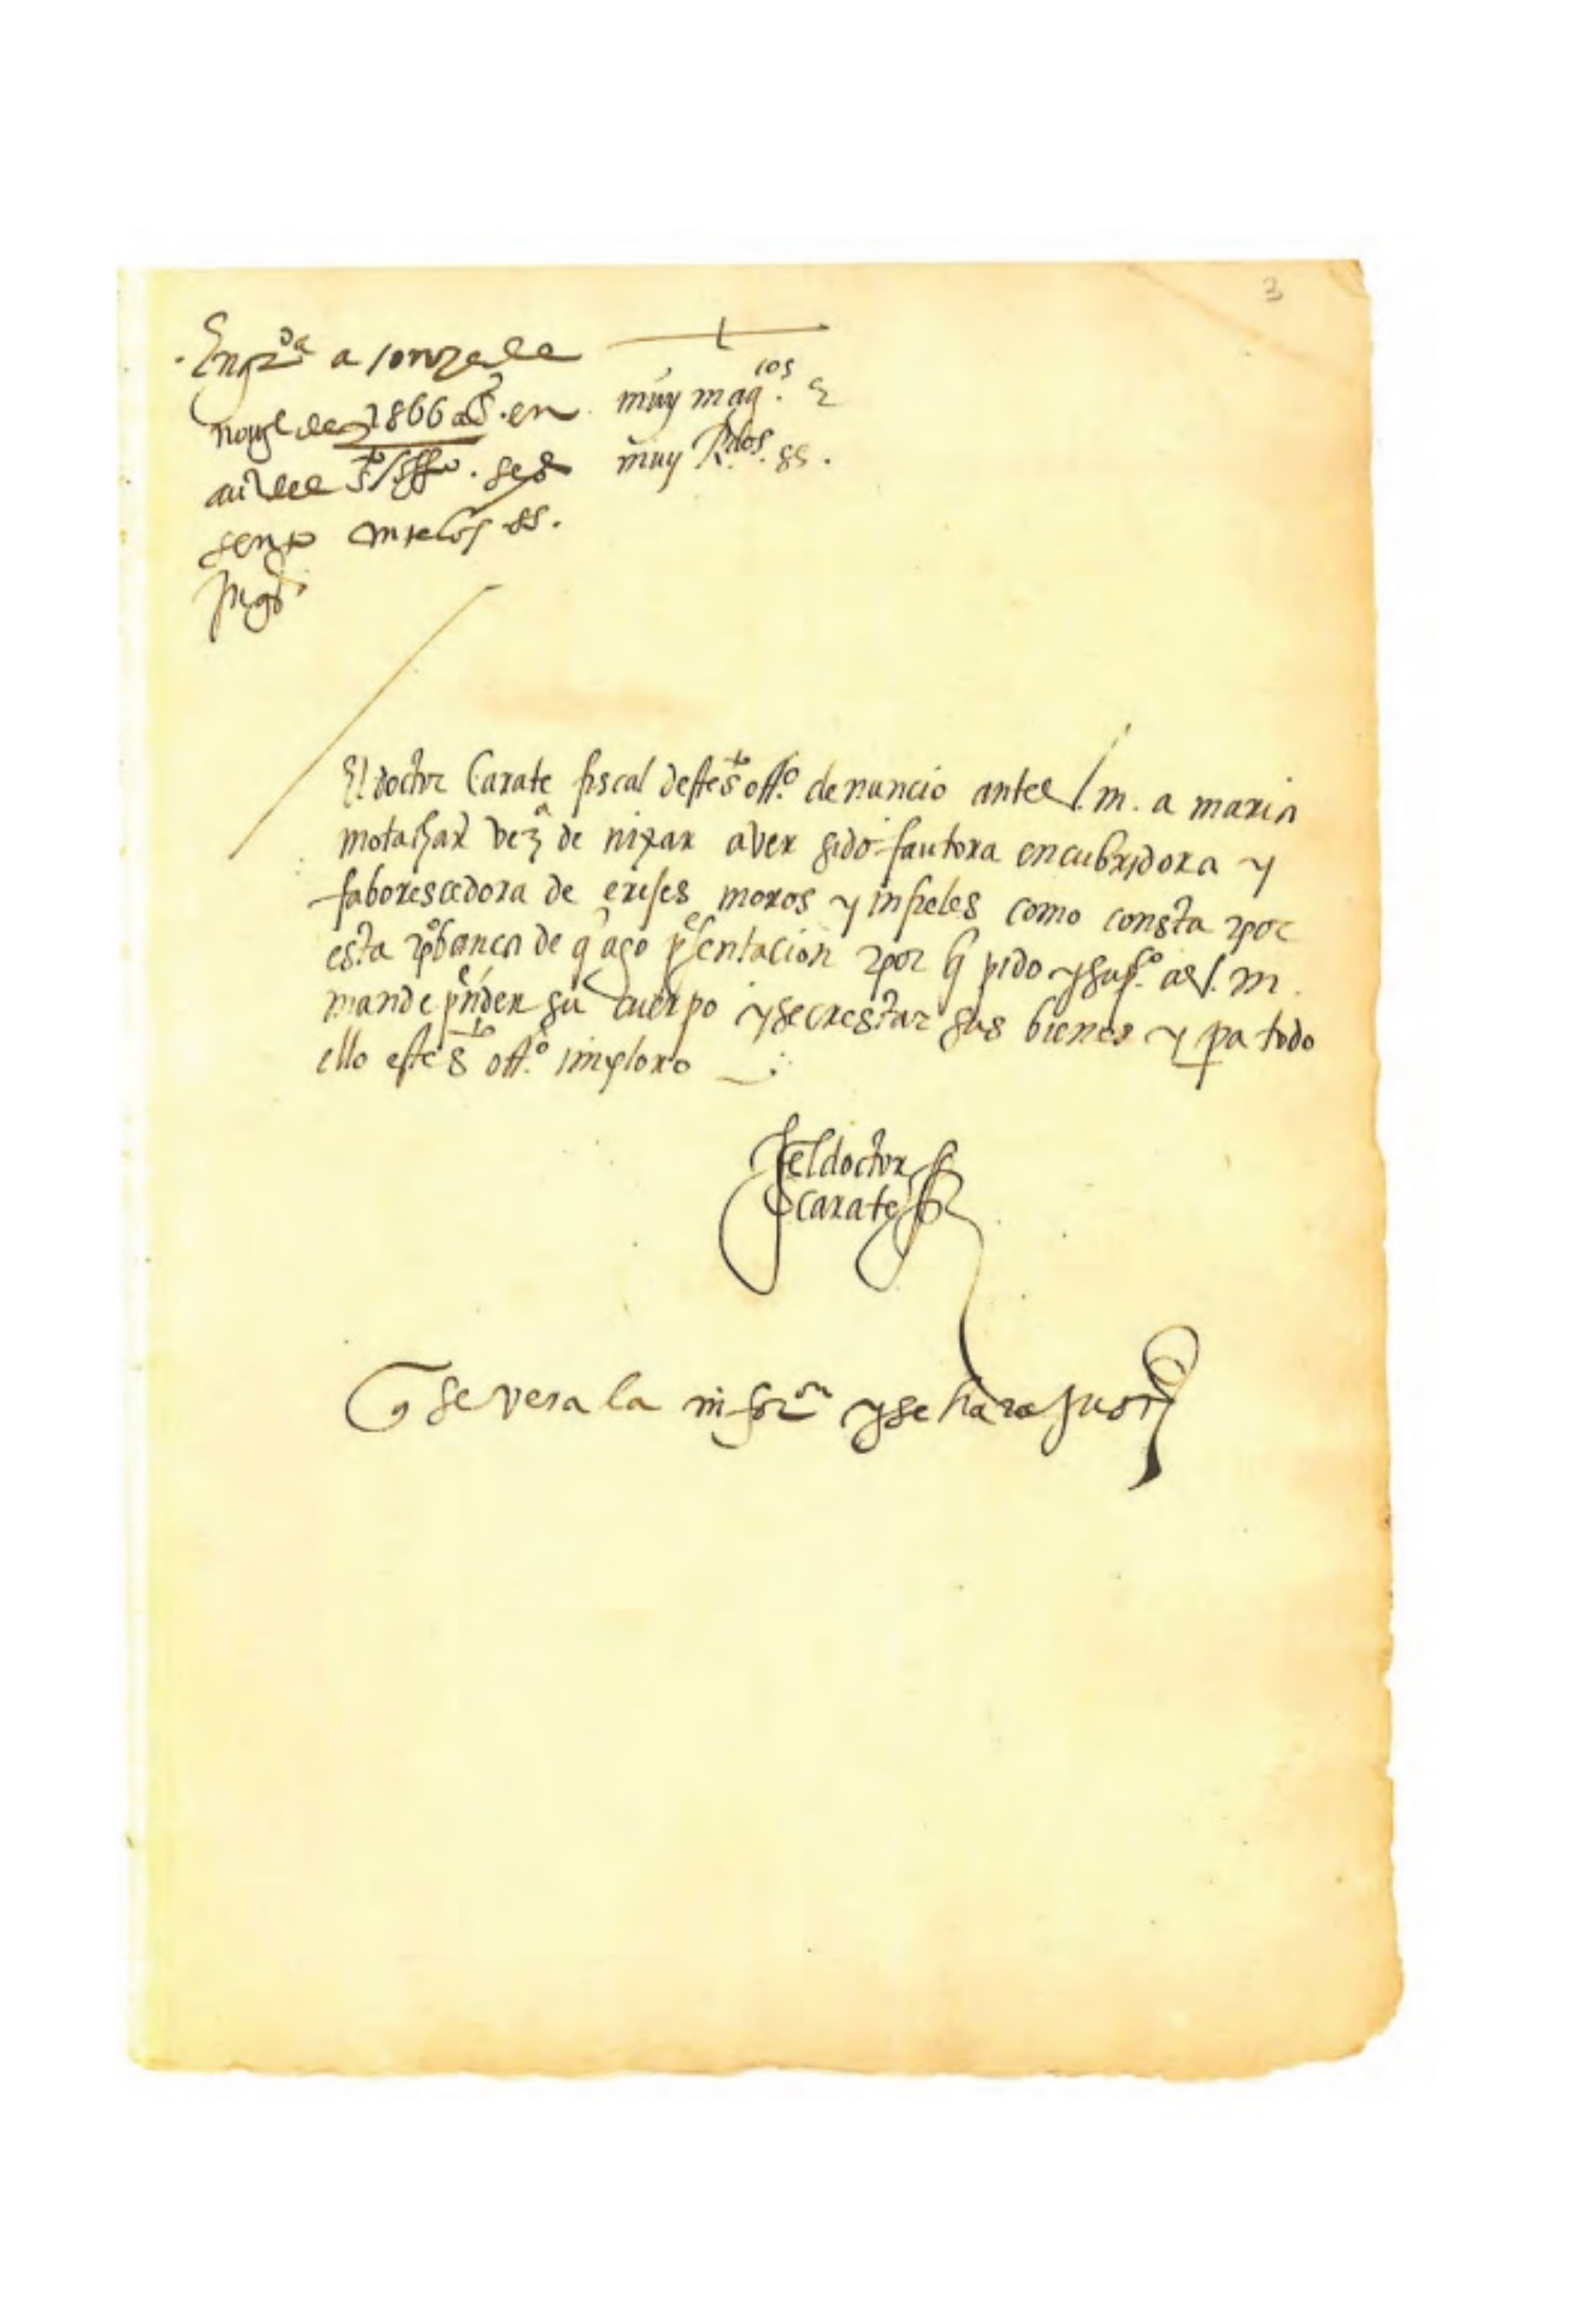 3
En grda a onze de
novye de 1566 as. en
au del sto offo. se
sento ante los ss.
Inqs
muy magcos. E
muy Rdos. ss.
El doctor Çarate fiscal deste sto offo. denuncio ante V. m. a maria
motahar veza de nixar aver sido fautora encubridora y
faborescedora de erejes moros y infieles como consta por
esta pobança de q ago psentacion por q pido y supco. a V. m.
mande pnder su cuerpo y secrestar sus bienes y pa todo
ello este sto offo. imploro
el doctor
çarate
q se vera la informon y se hara just